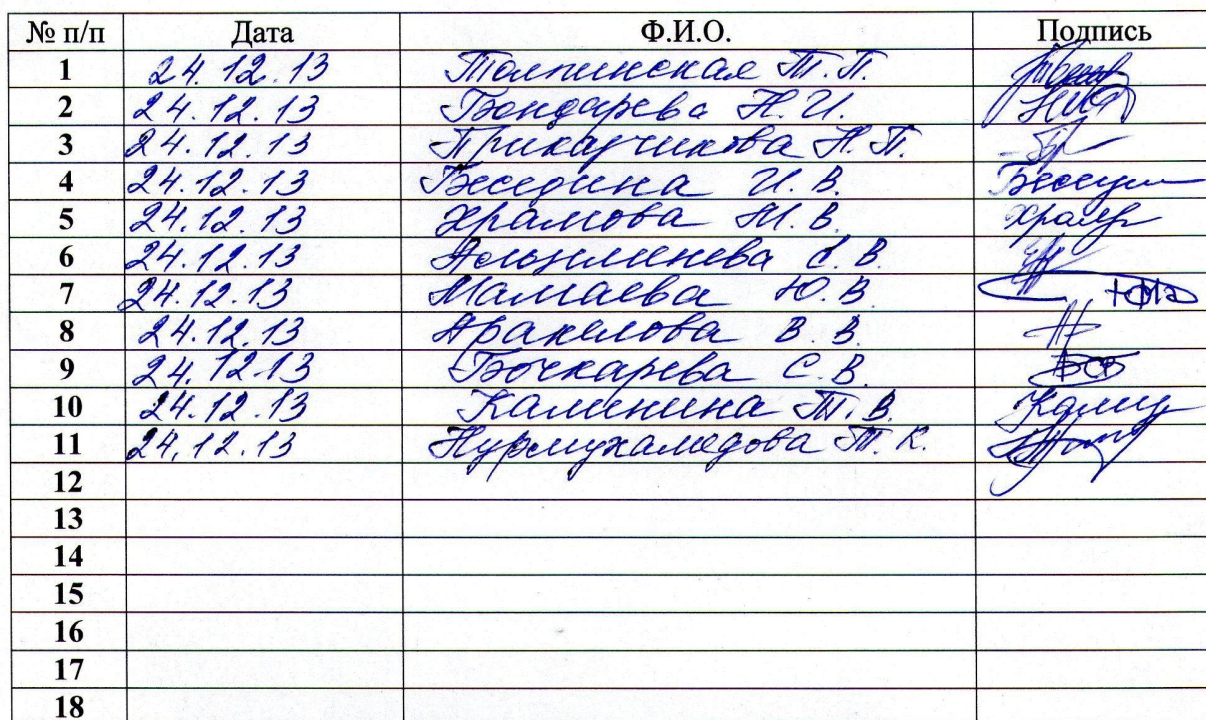 № п/п Дата Ф.И.О. Подпись
1 24.12.13 Толпинская Т.П.
2 24.12.13 Бондарева Н.И.
3 24.12.13 Приказчикова Н.П.
4 24.12.13 Беседина И.В.
5 24.12.13 Храмова М.В.
6 24.12.13 С.В.
7 24.12.13 Мамаева Ю.В.
8 24.12.13 Аракелова В.В.
9 24.12.13 Бочкарева С.В.
10 24.12.13 Калинина Т.В.
11 24.12.13 Нурмухамедова Т.К.
12
13
14
15
16
17
18